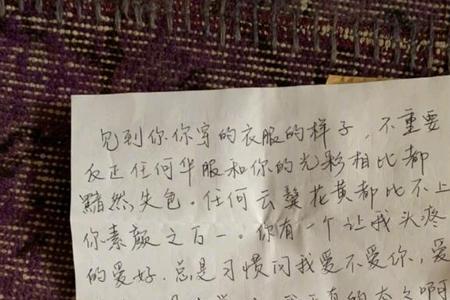 见到你你穿的衣服的样子，不重要
反正任何华服和你的光彩相比都
黯然失色。任何云鬓花黄都比不上
你素颜之万一。你有一个让我头疼
的爱好，总是习惯问我爱不爱你，爱